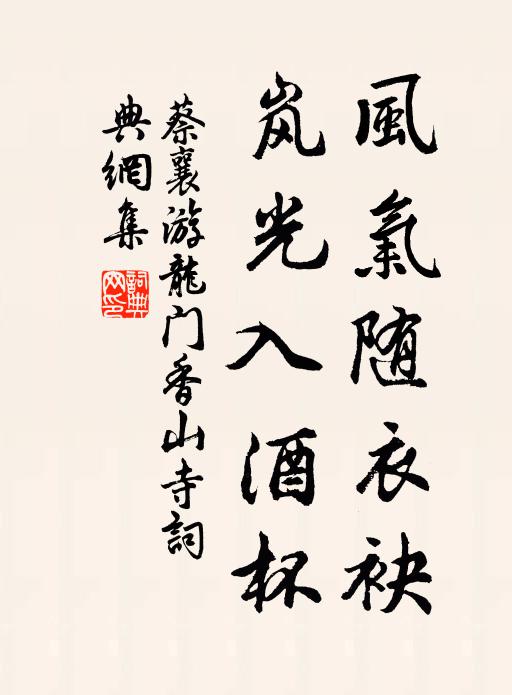 風氣随衣袂
岚光入酒杯
蔡襄游龍门香山寺詞
典網集
詞典
网印